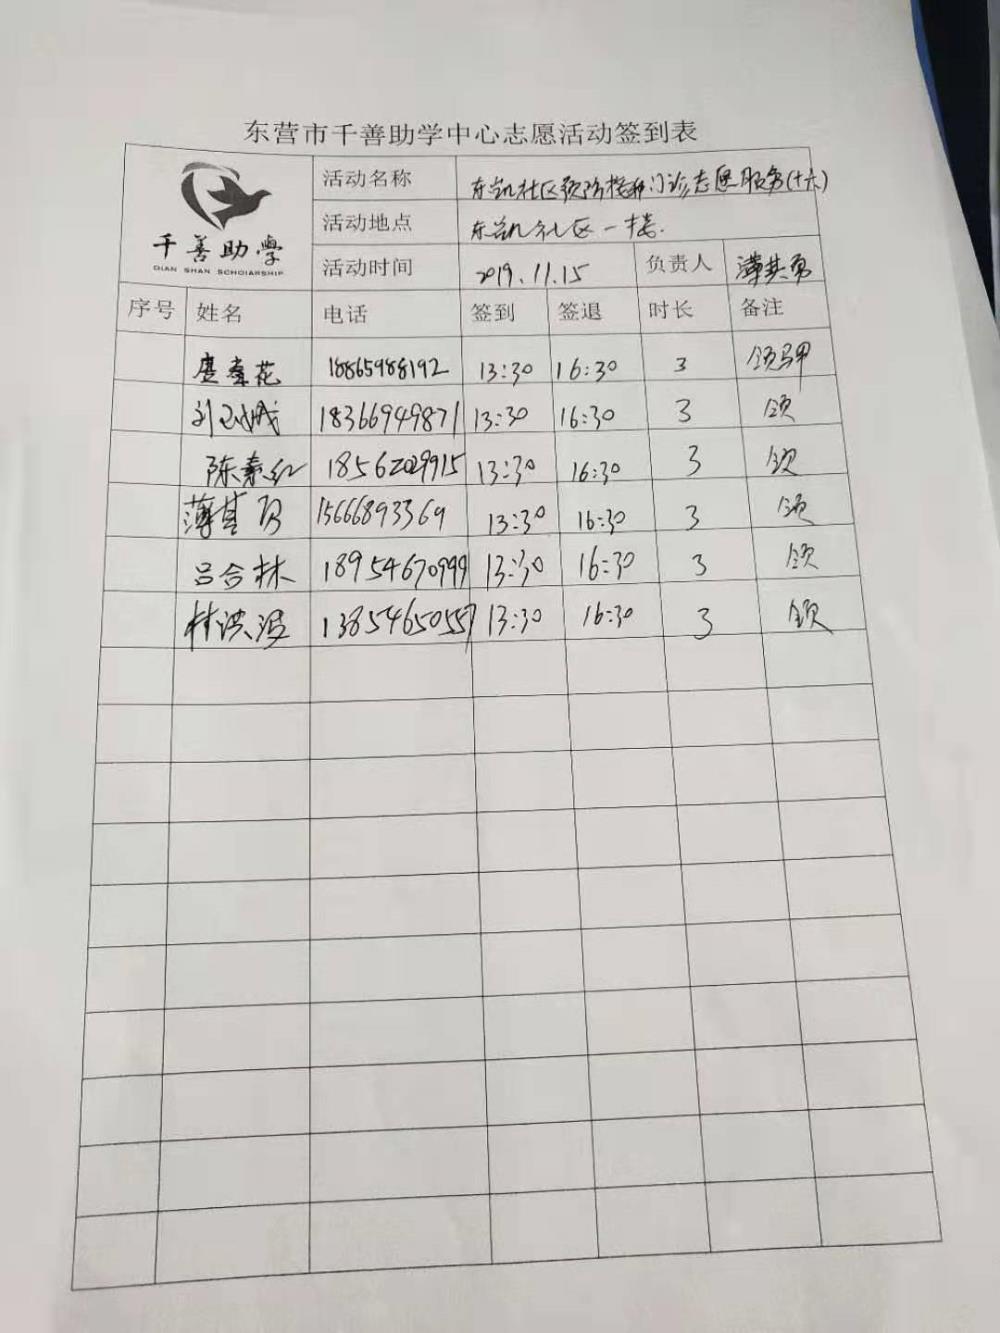 东营市千善助学中心志愿活动签到表
千善助学
QIAN SHAN SCHOIARSHIP
活动名称 东凯社区预防接种门诊志愿服务(十六)
活动地点 东凯社区一楼.
活动时间 2019.11.15 负责人
序号 姓名 电话 签到 签退 时长 备注
18865988192 13:30 16:30 3 领马甲
刘玉城 18366949871 13:30 16:30 3 领
陈素红 18562029915 13:30 16:30 3 领
15666893369 13:30 16:30 3 领
吕合林 18954670999 13:30 16:30 3 领
林洪波 13854650557 13:30 16:30 3 领